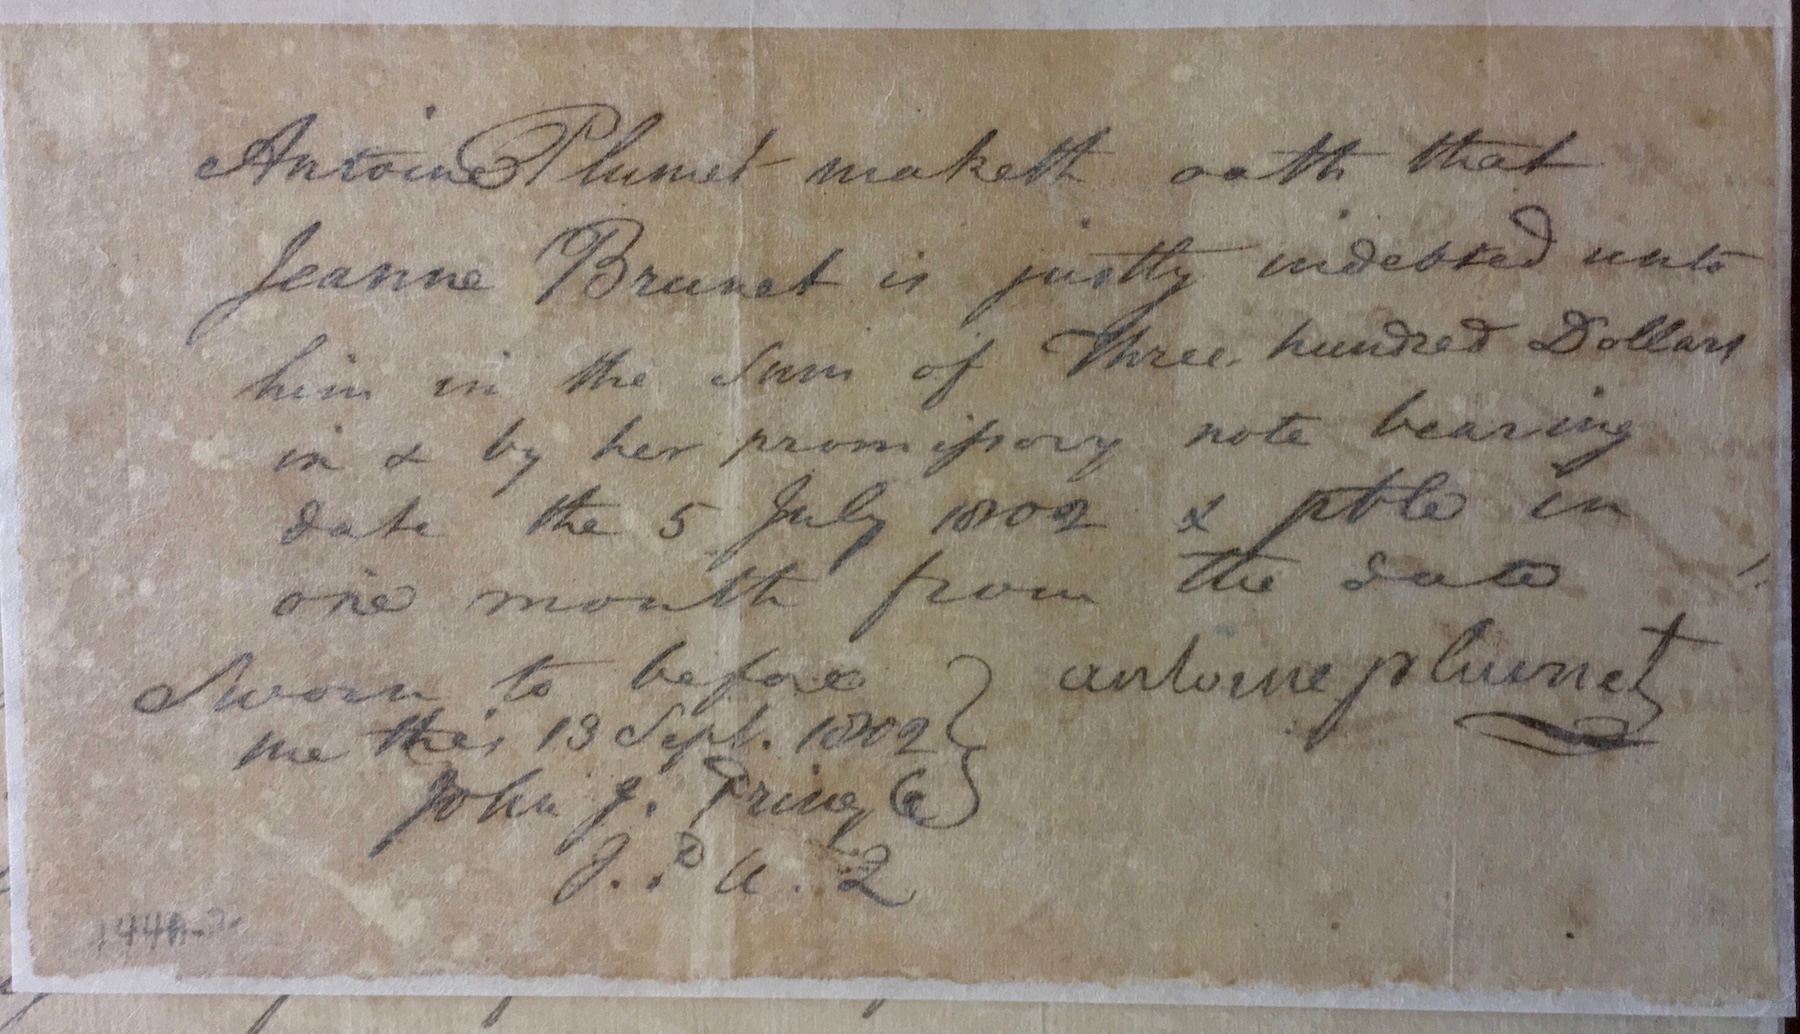 Antoine Plumet maketh oath that
Jeanne Brunet is justly indebted unto
him in the Sum of Three hundred Dollars
in & by her promissory note bearing
date the 5 July 1802 & pble in
one month from the date
Sworn to before
me this 13 Sept. 1802
antoine plumet
John J. Pringle
J. P. U. Q